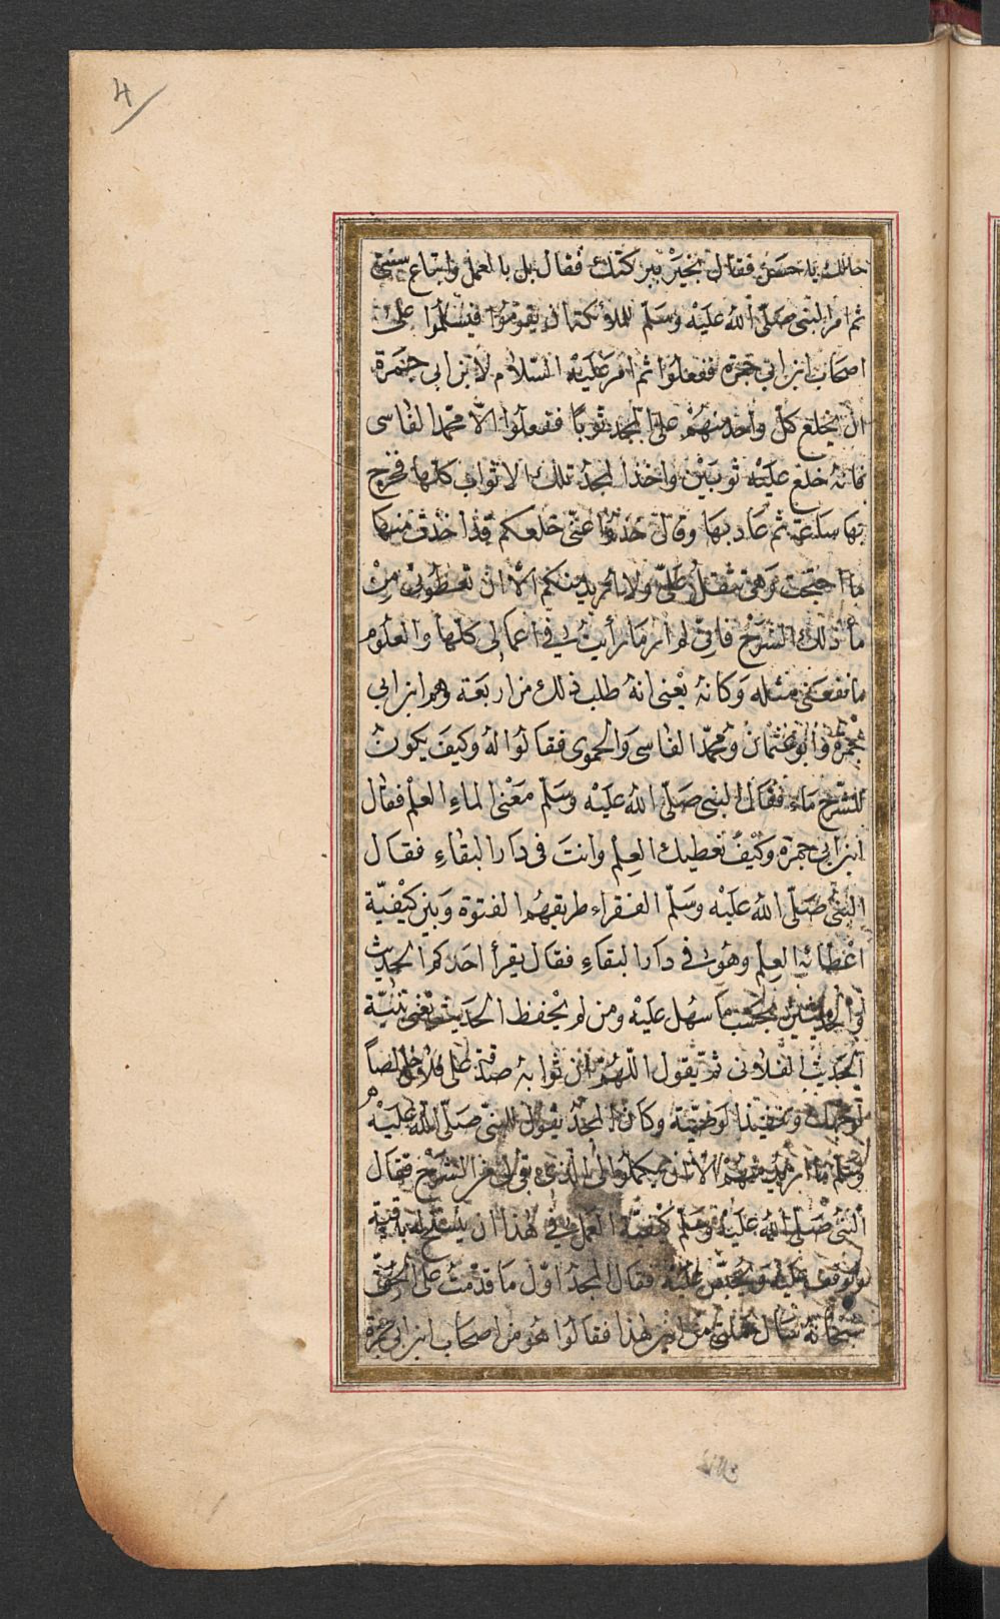 4
حالك يا حسن فقال بخير ببركتك فقال بل بالعمل واتباع سنتي
ثم امر النبي صلّى الله عليه وسلم للملائكة ان يقوموا فيسلموا على
اصحاب ابن ابي جمرة ففعلوا ثم امر عليه السلام لابن ابي جمرة
ان يخلع كل واحد منهم على المجد ثوبًا ففعلوا الا محمد الفاسى
فانه خلع عليه ثوبين واخذ المجد تلك الاثواب كلها فخرج
بها ساعة ثم عاد بها وقال خذوا عنى خلعكم قد اخذت منها
ما احتجت وهى تثقل على ولا اريد منكم الا ان تعطونى من
ماء ذلك الشرح فانى لم ار ما رأيت فى اعمالى كلها والعلوم
ما نفعنى مثله وكانه يعنى انه طلب ذلك من اربعة وهم ابن ابي
جمرة وابو عثمان ومحمد الفاسى والحموى فقالوا له وكيف يكون
للشرح ماء فقال النبى صلّى الله عليه وسلم معنى الماء العلم فقال
ابن ابي جمرة وكيف نعطيك العلم وانت فى دار البقاء فقال
النبى صلّى الله عليه وسلم الفقراء طريقهم الفتوة وبين كيفية
اعطائه العلم وهو فى دار البقاء فقال يقرأ احدكم الحديث
او الحديثين بحسب ما سهل عليه ومن لم يحفظ الحديث يعنى بنية
الحديث الفلانى ثم يقول اللهم ان ثوابه صدقة على فلان خالصاً
لوجهك وتنفيذا لوصية وكان المجد يقول للنبى صلّى الله عليه
وسلم ما اريد منهم الا ان يكملوا لى الذى بقى لى من الشرح فقال
النبى صلّى الله عليه وسلم كيفية العمل فى هذا ان
ويوقف عليه عليه فقال المجد اول ما قدمت على الحق
سبحانه من اين هذا فقالوا هو من اصحاب ابن ابي جمرة